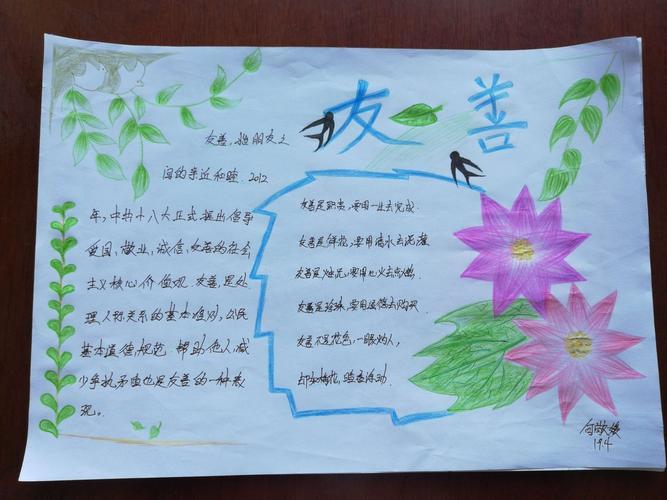 友善
友善,指朋友之
间的亲近和睦.2012
年,中共十八大正式提出倡导
爱国、敬业、诚信、友善的社会
主义核心价值观.友善,是处
理人际关系的基本准则,公民
基本道德规范.帮助他人,减
少争执矛盾也是友善的一种表
现。
友善是职责,要用一生去完成.
友善是鲜花,要用滴水去浇灌
友善是,要用心火去点燃.
友善是,要用去购买
友善不是花色,一眼灼人,
却如梅花,暗香浮动.
向
19.4